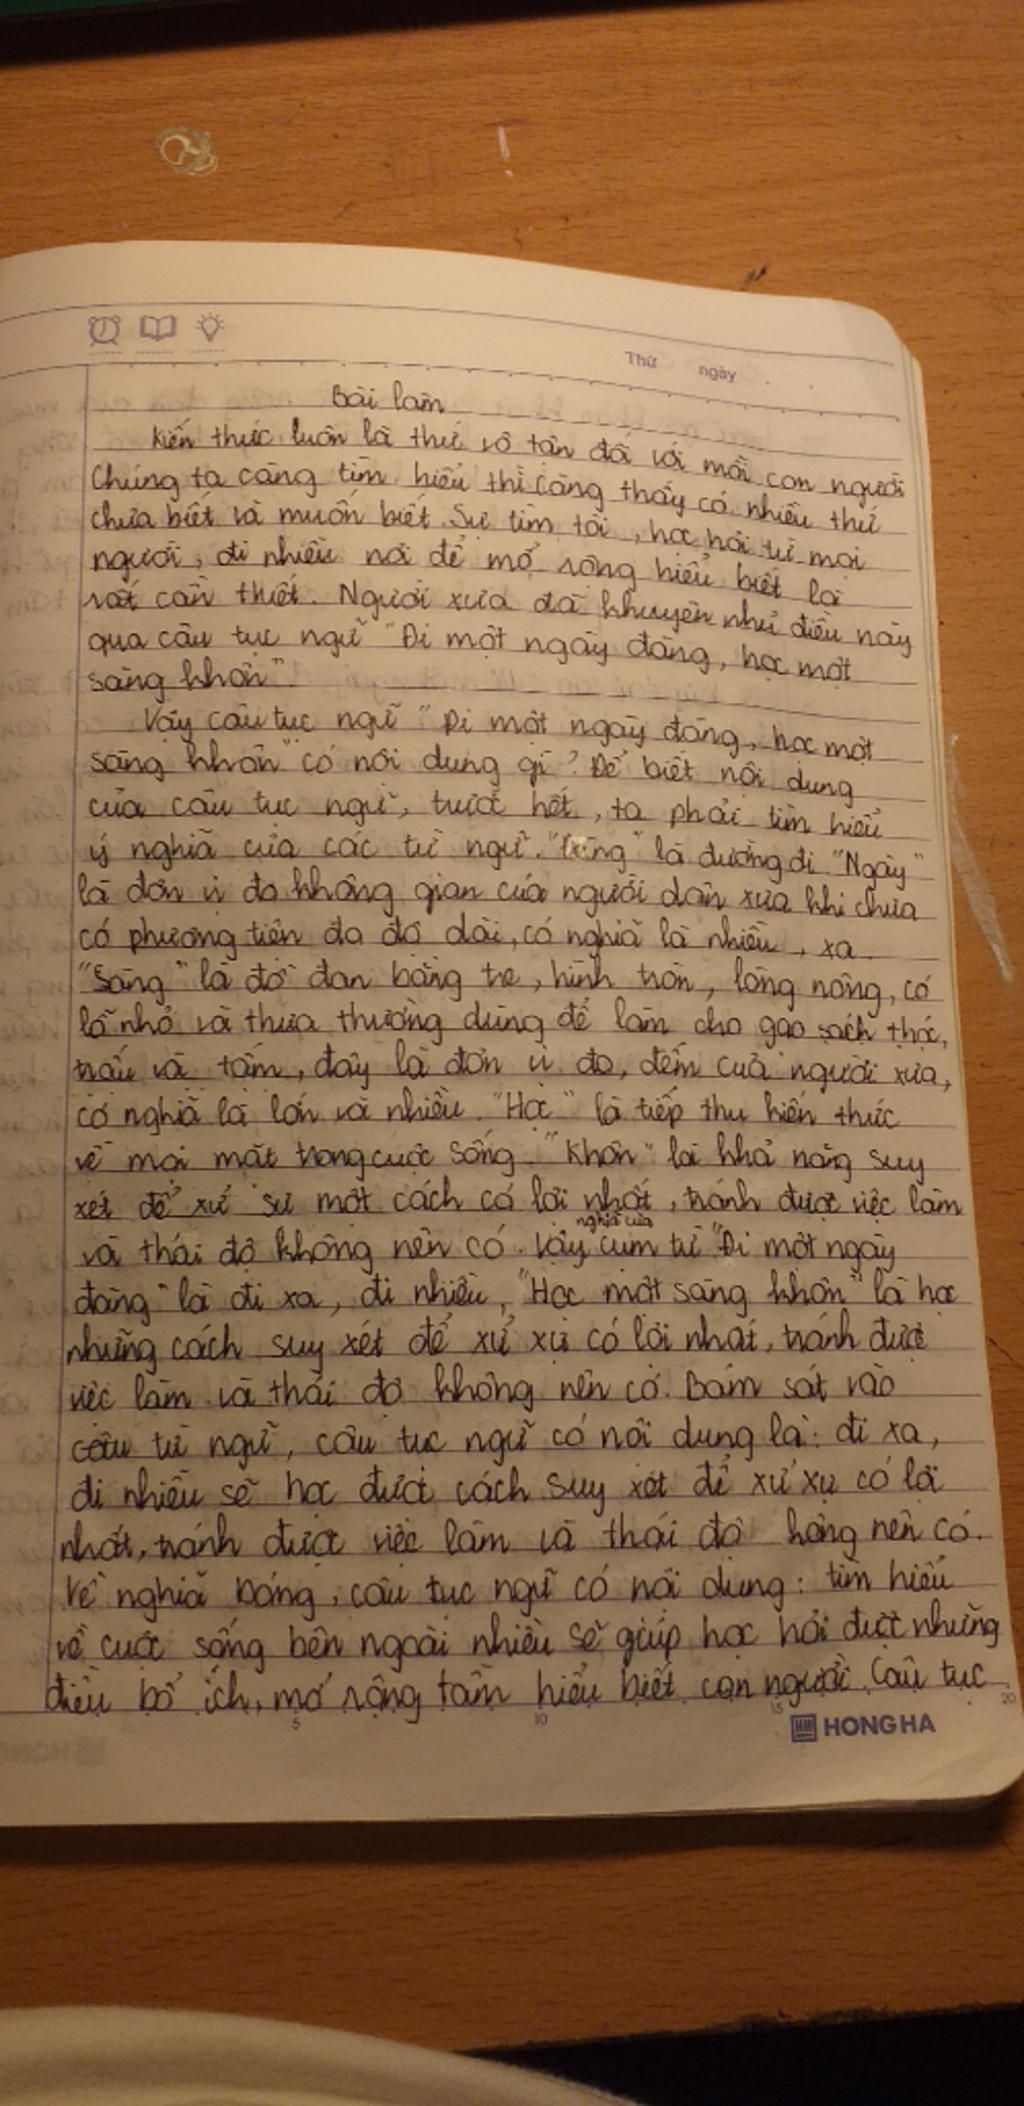 Thứ ngày
Bài làm
Kiến thức luôn là thứ vô tận đối với mỗi con người
Chúng ta càng tìm hiểu thì càng thấy có nhiều thứ
chưa biết và muốn biết. Sự tìm tòi, học hỏi từ mọi
người, đi nhiều nơi để mở rộng hiểu biết là
rất cần thiết. Người xưa đã khuyên nhủ điều này
qua câu tục ngữ "Đi một ngày đàng, học một
sàng khôn"
Vậy câu tục ngữ "Đi một ngày đàng, học một
sàng khôn" có nội dung gì? Để biết nội dung
của câu tục ngữ, trước hết, ta phải tìm hiểu
ý nghĩa của các từ ngữ. "Đàng" là đường đi "Ngày"
là đơn vị đo không gian của người dân xưa khi chưa
có phương tiện đo độ dài, có nghĩa là nhiều, xa.
"Sàng" là đồ đan bằng tre, hình tròn, lòng nông, có
lỗ nhỏ và thưa thường dùng để làm cho gạo sạch thóc,
trấu và tấm, đây là đơn vị đo, đếm của người xưa,
có nghĩa là lớn và nhiều. "Học" là tiếp thu kiến thức
về mọi mặt trong cuộc sống. "Khôn" là khả năng suy
xét để xử sự một cách có lợi nhất, tránh được việc làm
và thái độ không nên có. Vậy nghĩa của cụm từ "Đi một ngày
đàng" là đi xa, đi nhiều, "Học một sàng khôn" là học
những cách suy xét để xử xự có lợi nhất, tránh được
việc làm và thái độ không nên có. Bám sát vào
câu từ ngữ, câu tục ngữ có nội dung là: đi xa,
đi nhiều sẽ học được cách suy xét để xử xự có lợi
nhất, tránh được việc làm và thái độ hông nên có.
Về nghĩa bóng, câu tục ngữ có nội dung: tìm hiểu
về cuộc sống bên ngoài nhiều sẽ giúp học hỏi được những
điều bổ ích, mở rộng tầm hiểu biết con người. Câu tục
5 10 15 20
HONG HA